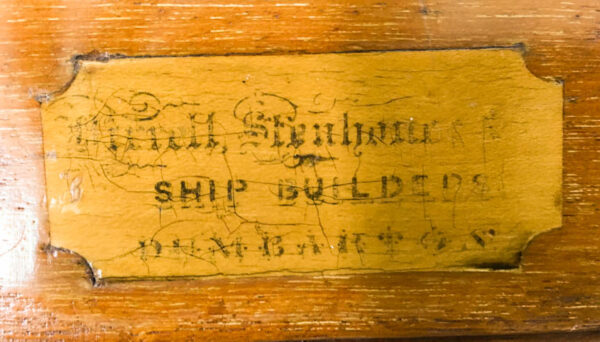 Birrell, Stenhouse &
SHIP BUILDERS
DUMBARTON